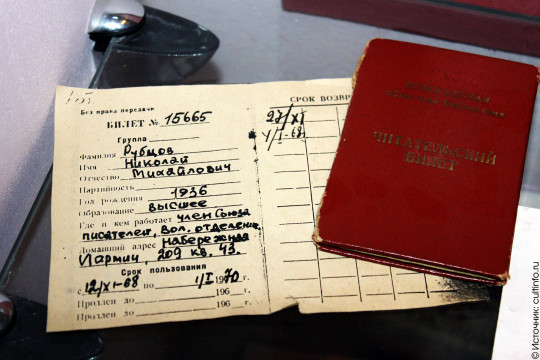 Без права передачи
БИЛЕТ № 15665
Группа
Фамилия Рубцов
Имя Николай
Отчество Михайлович
Партийность
Год рождения 1936
Образование высшее
Где и кем работает член Союза
писателей, Вол. отделение
Домашний адрес Набережная
VI Армии, 209 кв. 43.
Срок пользования
с 12/XI-68 по 1/I 1970 г.
Продлен до 196 г.
Продлен до 196 г.
СРОК ВОЗВР
1/I-68.
ЧИТАТЕЛЬСКИЙ
БИЛЕТ
© Источник: cultinfo.ru